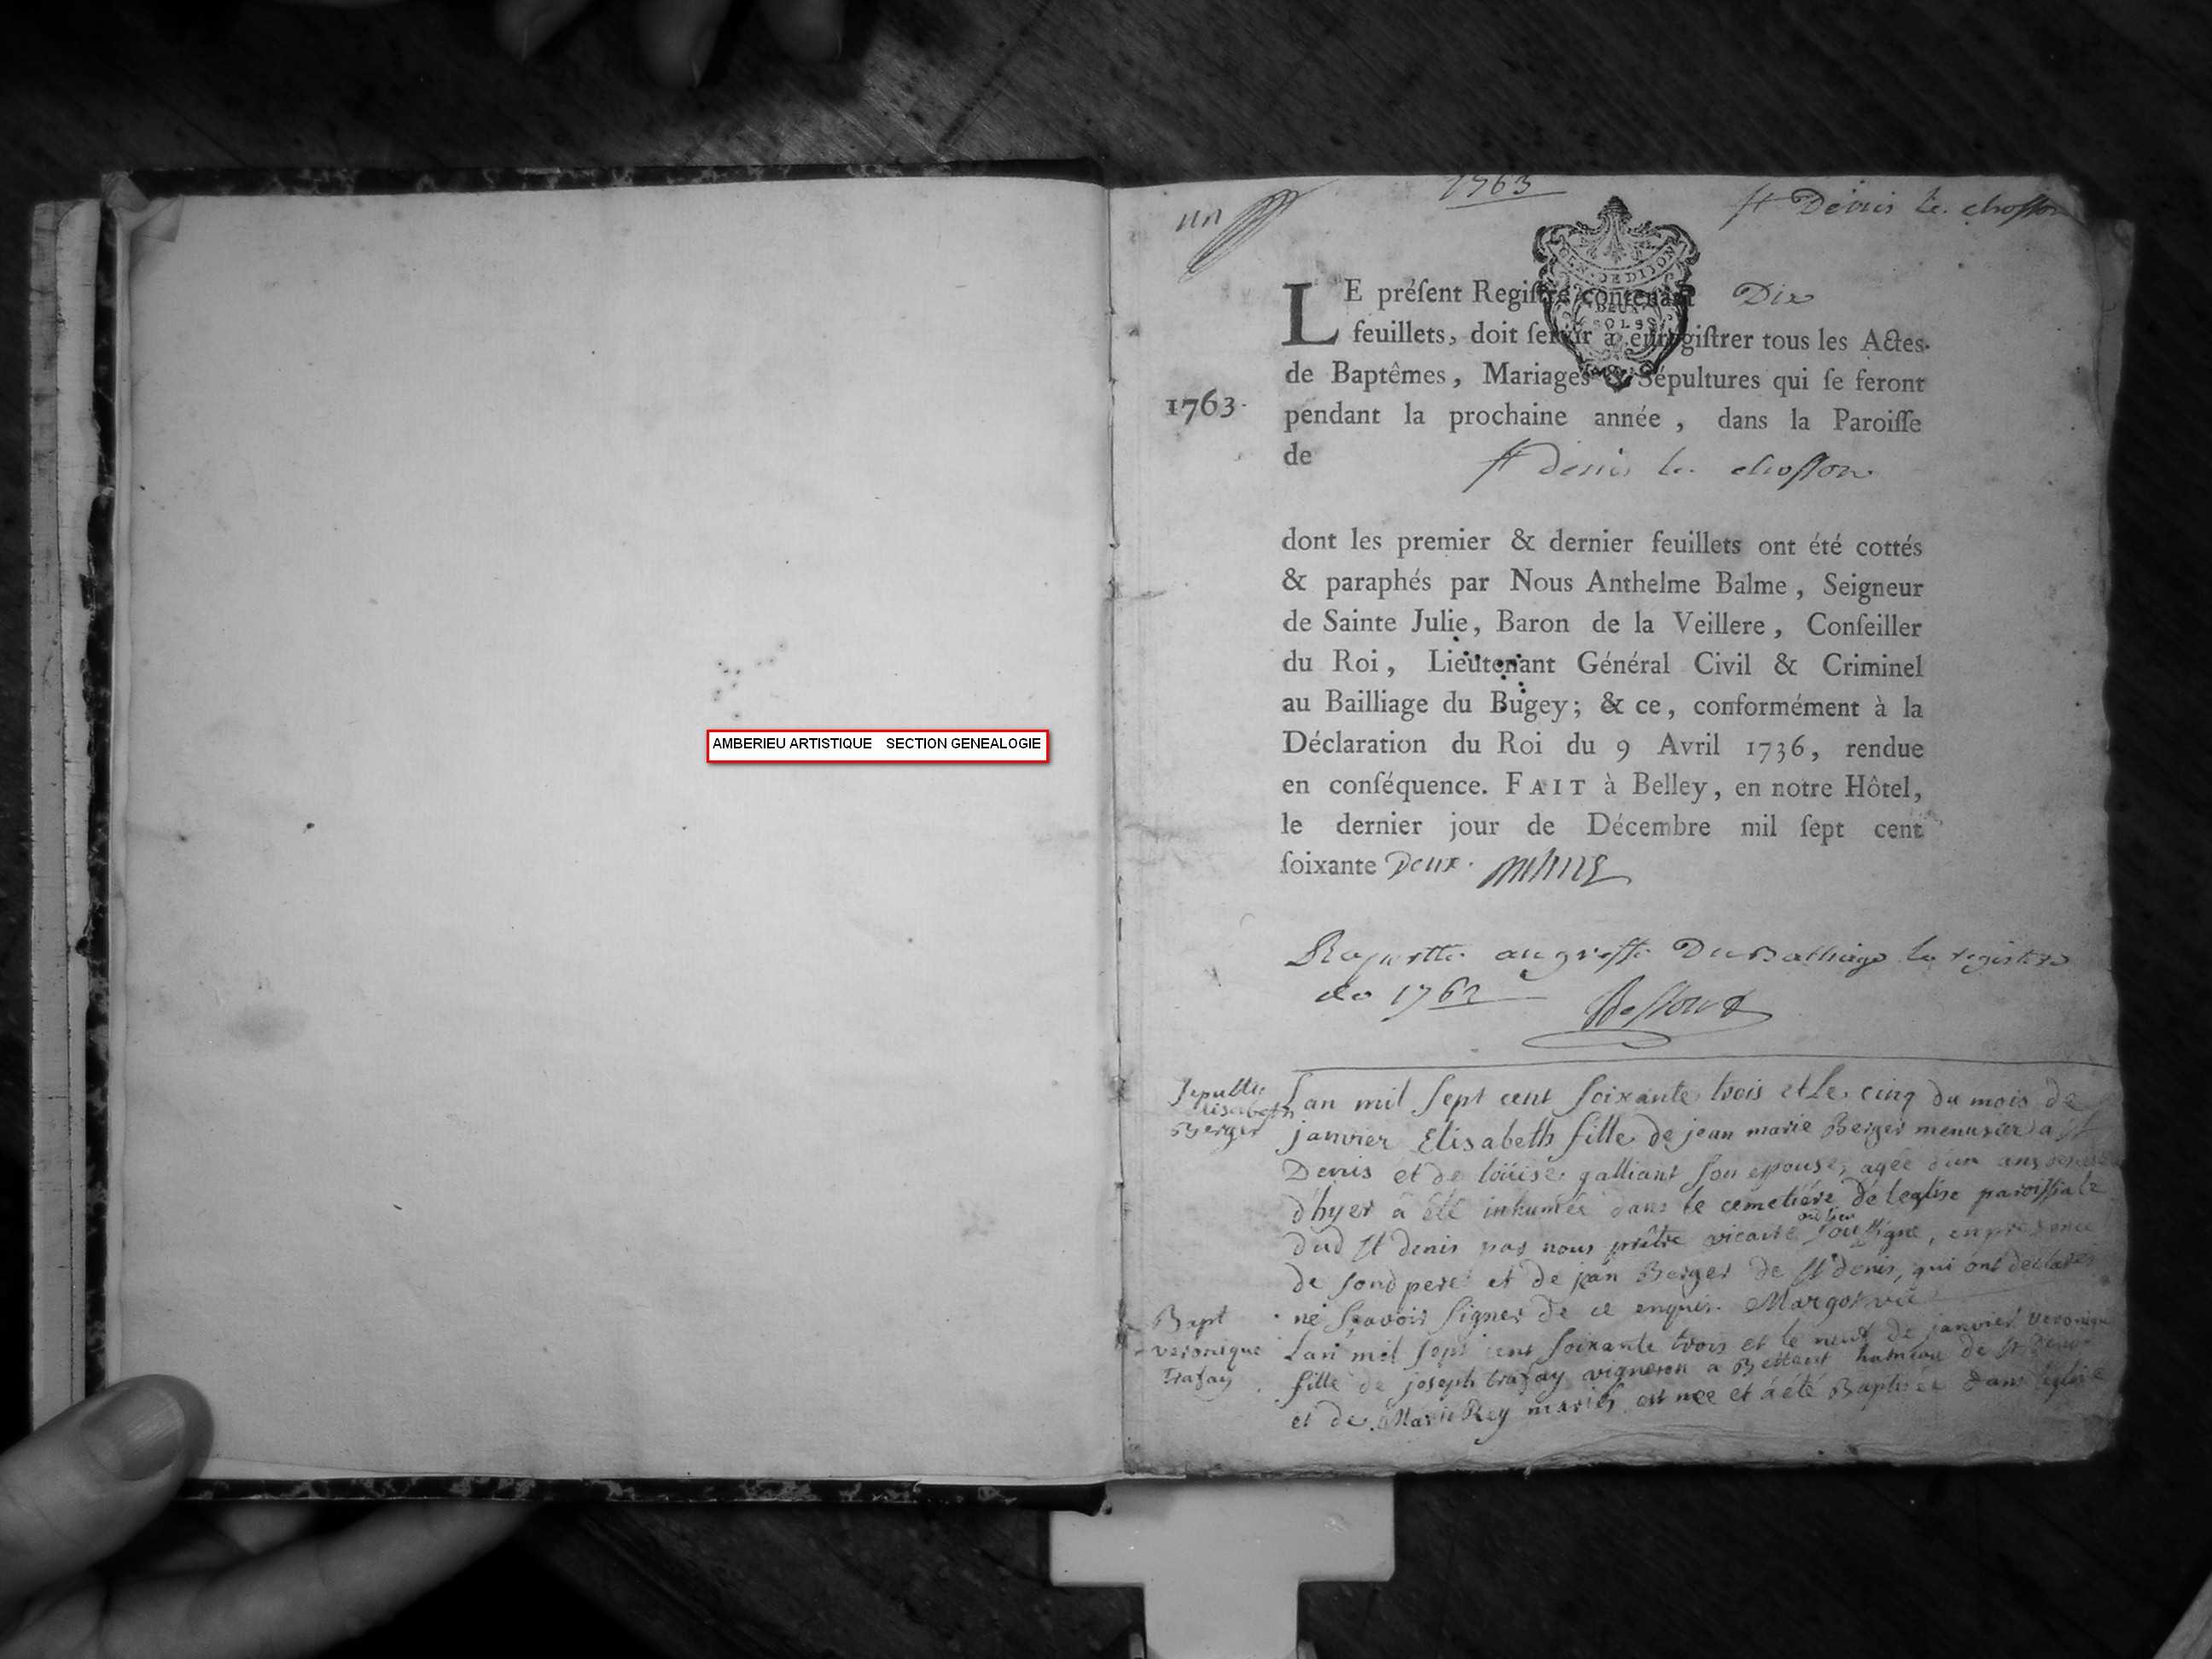 1763
un
St Denis le chosson
GEN. DE DIJON
DEUX
SOLS
LE préſent Regiſtre contenant Dix
feuillets, doit ſervir à enregiſtrer tous les Actes
de Baptêmes, Mariages & Sépultures qui ſe feront
1763.
pendant la prochaine année, dans la Paroiſſe
de St denis le chosson
dont les premier & dernier feuillets ont été cottés
& paraphés par Nous Anthelme Balme, Seigneur
de Sainte Julie, Baron de la Veillere, Conſeiller
du Roi, Lieutenant Général Civil & Criminel
au Bailliage du Bugey; & ce, conformément à la
Déclaration du Roi du 9 Avril 1736, rendue
en conſéquence. FAIT à Belley, en notre Hôtel,
le dernier jour de Décembre mil ſept cent
ſoixante Deux.
AMBERIEU ARTISTIQUE SECTION GENEALOGIE
au greffe Du Balliage le registre
de 1762
Sepulte
Elisabeth
Berger
Lan mil sept cent soixante trois et le cinq du mois de
janvier Elisabeth fille de jean marie Berger menusier a St
Denis et de loüise galliant son epouse, agée d'un ans
d'hyer a été inhumée dans le cemetiére de leglise paroissiale
dud St denis par nous prêtre vicaire soussigné, en presence
de sond pere et de jean Berger de St denis, qui ont declarés
ne sçavoir signer de ce enquis.
Bapt
veronique
trafay
Lan mil sept cent soixante trois et le neuf de janvier veronique
fille de joseph trafay vigneron a Bettant hameau de St Denis
et de Marie Rey mariés est nee et a été Baptisée dans l'eglise